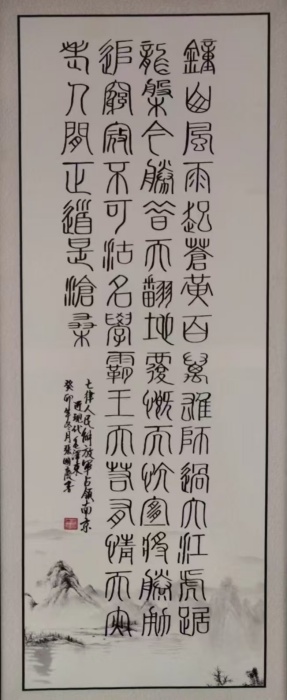 鐘山風雨起蒼黃百萬雄師過大江虎踞
龍槃今勝昔天翻地覆慨而慷宜將勝勇
追窮寇不可沽名學霸王天若有情天亦
老人間正道是滄桑
七律人民解放軍占領南京
近現代毛澤東
癸卯年月張國慶書